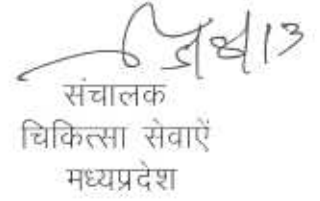 संचालक
चिकित्सा सेवाऐं
मध्यप्रदेश